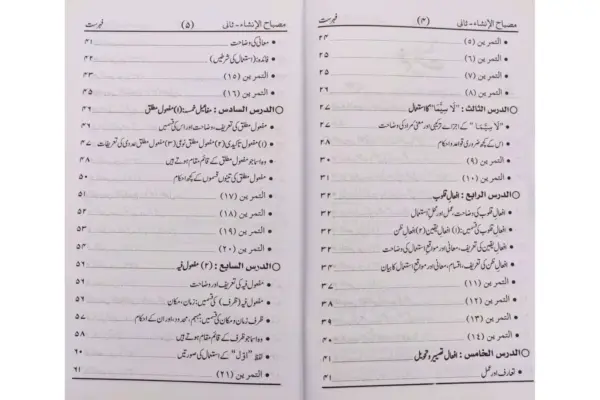 مصباح الإنشاء - ثانی (۴) فہرست
• التمرین (۵) ۲۴
• التمرین (۶) ۲۵
• التمرین (۷) ۲۵
• التمرین (۸) ۲۶
○ الدرس الثالث : "لَا سِيَّمَا" کا استعمال ۲۷
• "لَا سِيَّمَا" کے اجزائے ترکیبی اور معنیٔ مراد کی وضاحت ۲۷
• اس کے کچھ ضروری قواعد و احکام ۲۸
• التمرین (۹) ۳۰
• التمرین (۱۰) ۳۱
○ الدرس الرابع : افعالِ قلوب ۳۲
• افعالِ قلوب کی وضاحت، عمل اور محلِ استعمال ۳۲
• افعالِ قلوب کی قسمیں: (۱) افعالِ یقین (۲) افعالِ ظن ۳۲
• افعالِ یقین کی تعریف، معانی اور مواقعِ استعمال کی وضاحت ۳۲
• افعالِ ظن کی تعریف، اقسام، معانی اور مواقعِ استعمال کا بیان ۳۴
• التمرین (۱۱) ۳۷
• التمرین (۱۲) ۳۸
• التمرین (۱۳) ۳۹
• التمرین (۱۴) ۴۰
○ الدرس الخامس : افعالِ تصییر و تحویل ۴۱
• تعارف اور عمل ۴۱
مصباح الإنشاء - ثانی (۵) فہرست
• معانی کی وضاحت ۴۱
• فائدہ: (استعمال کی شرطیں) ۴۲
• التمرین (۱۵) ۴۳
• التمرین (۱۶) ۴۵
○ الدرس السادس : مفاعیلِ خمسہ: (۱) مفعول مطلق ۴۶
• مفعول مطلق کی تعریف، وضاحت اور اس کی قسمیں ۴۶
• (۱) مفعول مطلق تاکیدی (۲) مفعول مطلق نوعی (۳) مفعول مطلق عددی کی تعریفات ۴۷
• وہ اسما جو مفعول مطلق کے قائم مقام ہوتے ہیں ۴۸
• مفعول مطلق کی تینوں قسموں کے کچھ احکام ۵۰
• التمرین (۱۷) ۵۱
• التمرین (۱۸) ۵۲
• التمرین (۱۹) ۵۳
• التمرین (۲۰) ۵۴
○ الدرس السابع : (۲) مفعول فیہ ۵۶
• مفعول فیہ کی تعریف اور وضاحت ۵۶
• مفعول فیہ (ظرف) کی قسمیں: زمان، مکان ۵۶
• ظرف زمان و مکان کی قسمیں: مبہم، محدود، اور ان کے احکام ۵۷
• وہ اسما جو ظرف کے قائم مقام ہوتے ہیں ۵۸
• لفظ "اَوَّل" کے استعمال کی صورتیں ۶۰
• التمرین (۲۱) ۶۱